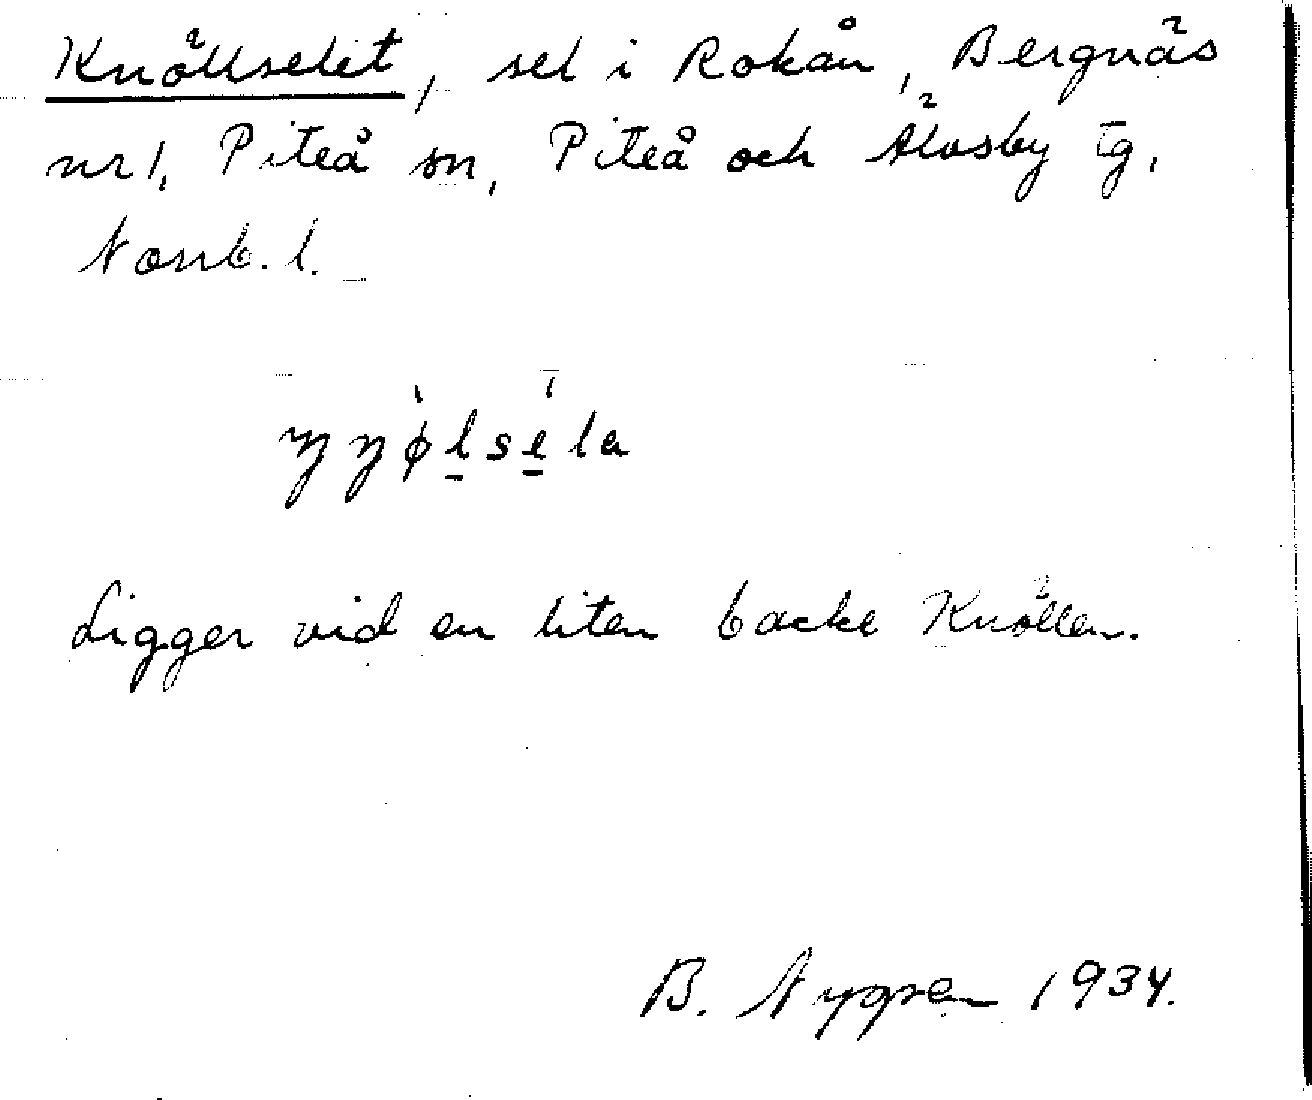 Knöllselet, sel i Rokån, Bergnäs
nr 1, Piteå sn, Piteå och Älvsby tg,
Norrb. l.
Ligger vid en liten backe Knöllen.
B. Nygren 1934.